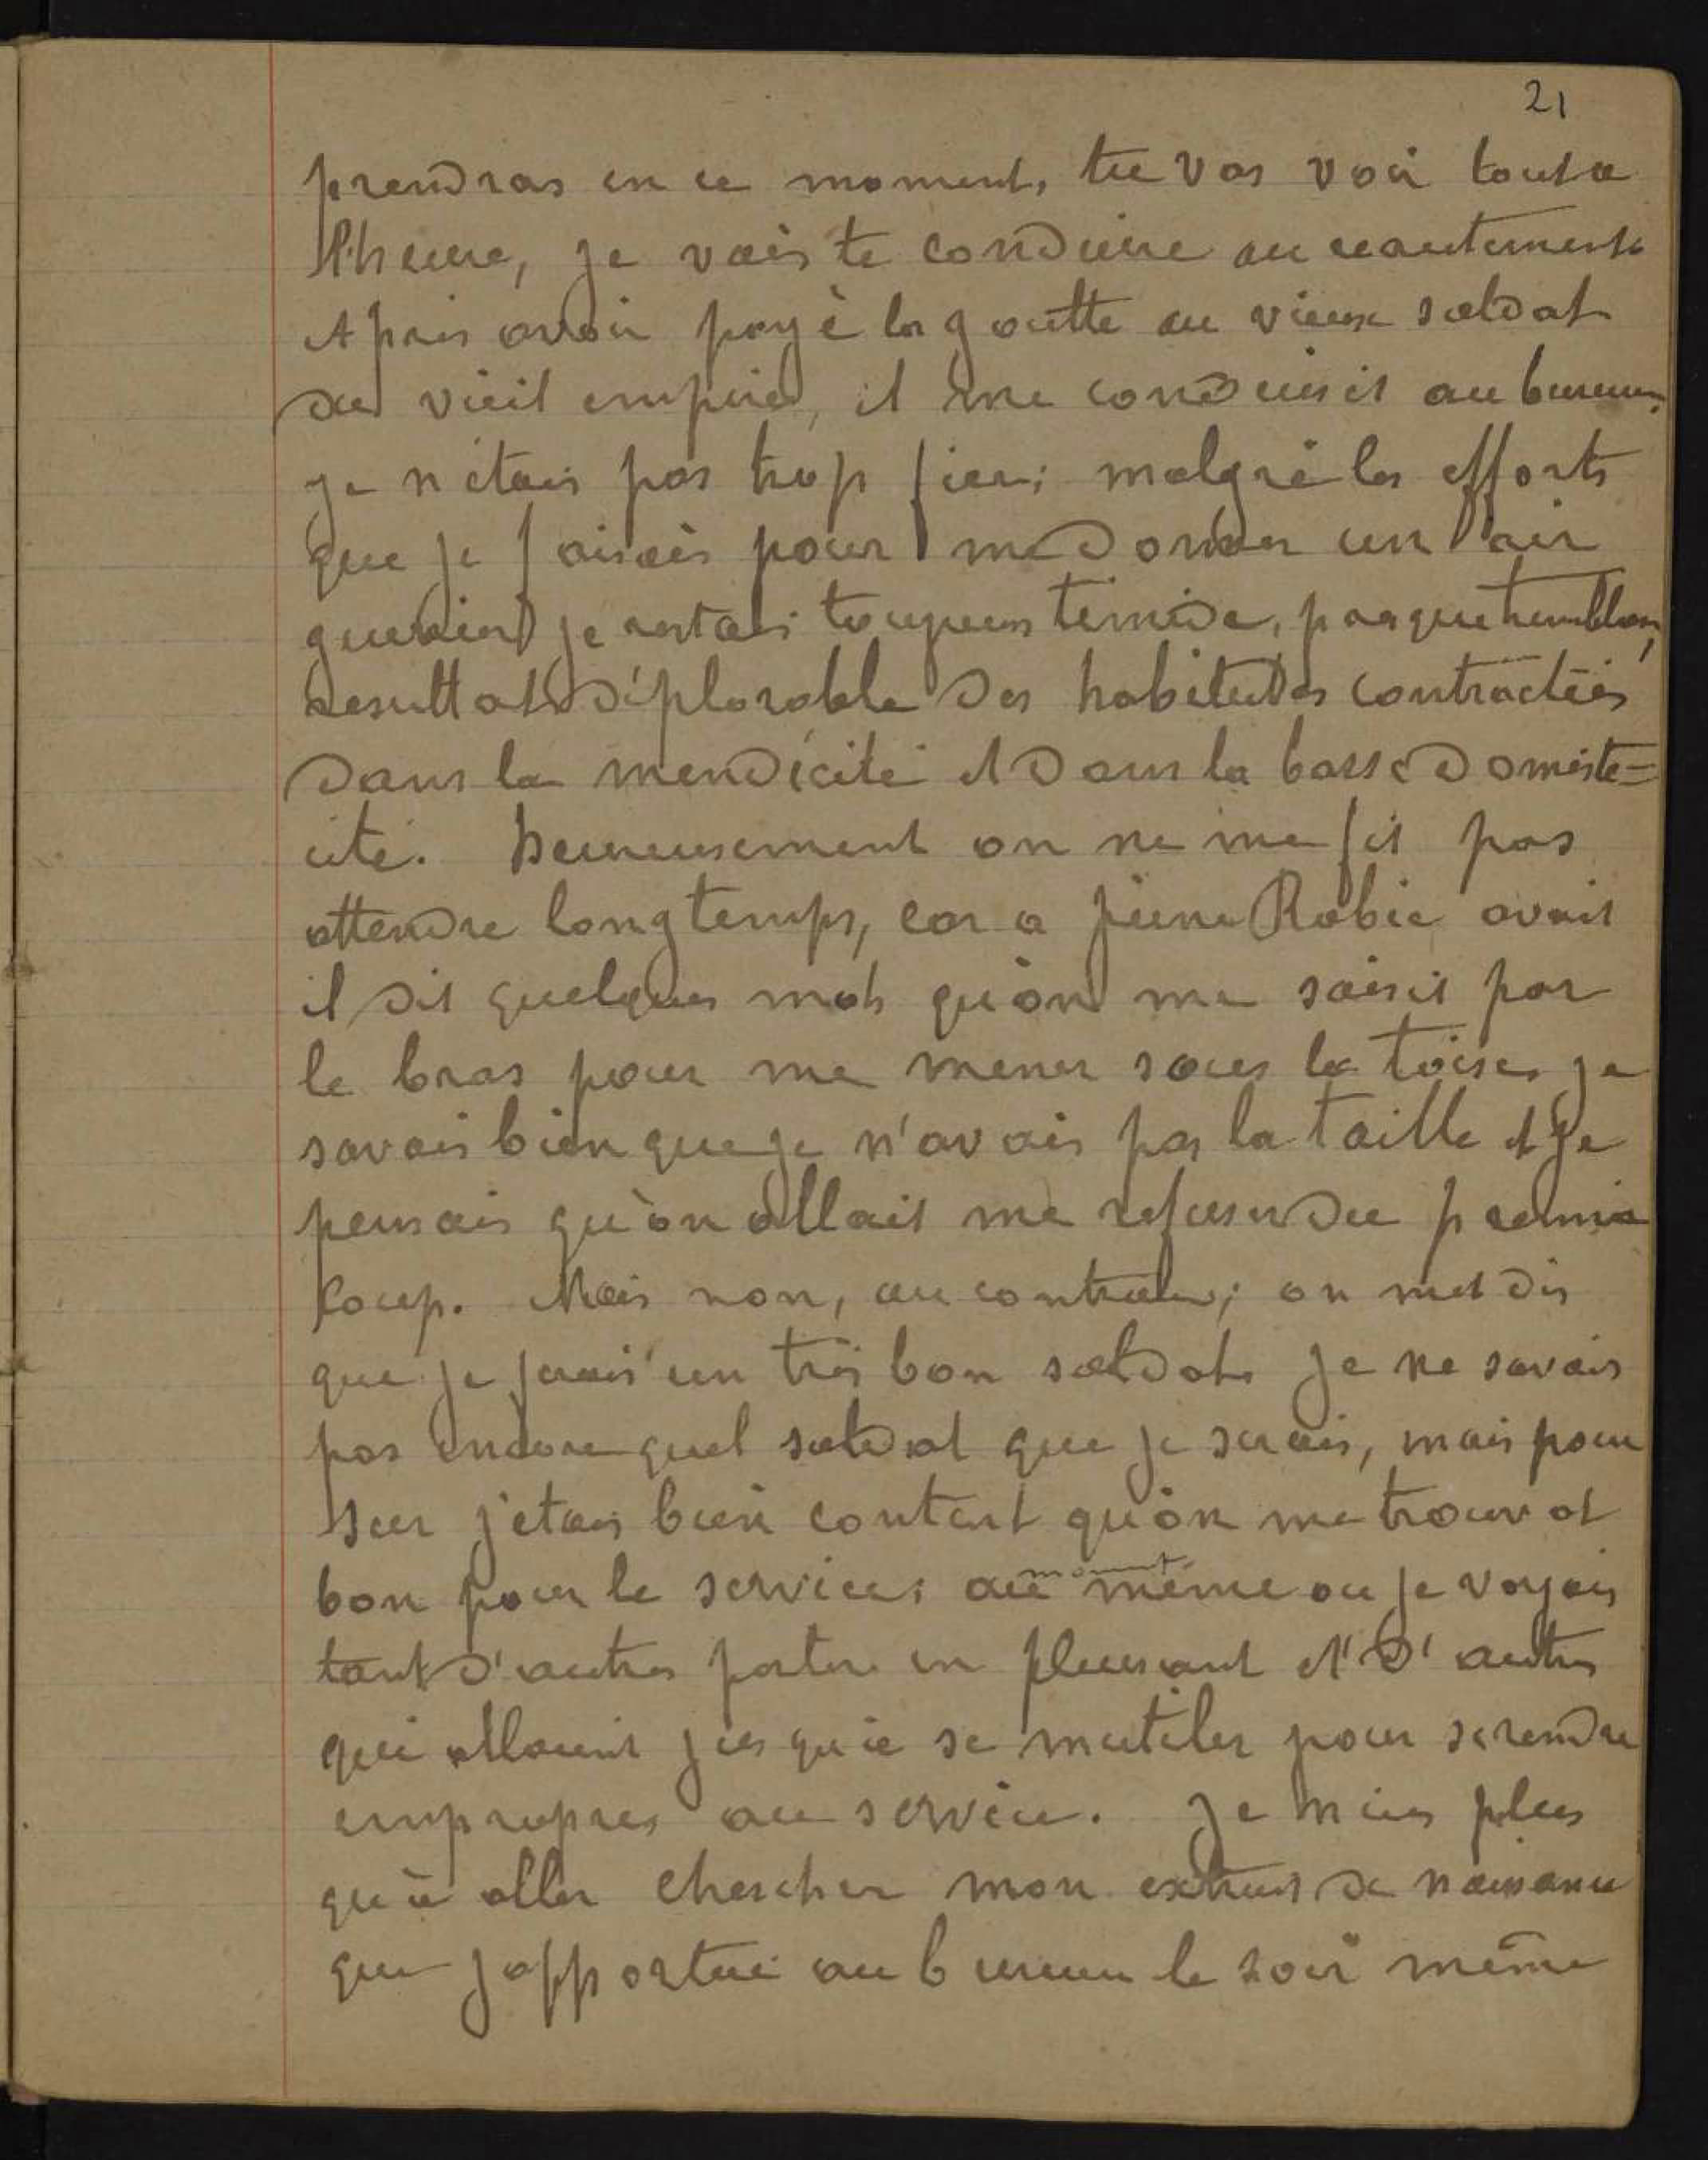 21
prendras en ce moment, tu vas voir tout a
l'heure, je vais te conduire au recrutement.
Apres avoir payé la goutte au vieux soldat
du vieil empire, il me conduisit au bureau.
je n'étais pas trop fier; malgré les efforts
que je faisais pour me donner un air
guerrier je restais toujours timide, presque tremblant,
resultat déplorable des habitudes contractées
dans la mendicité et dans la basse domesti=
cité. heureusement on ne me fit pas
attendre longtemps, car a peine Robic avait
il dit quelques mots qu'on me saisit par
le bras pour me mener sous la toise. je
savais bien que je n'avais pas la taille et je
pensais qu'on allait me refuser du premier
coup. Mais non, au contraire; on me dit
que je ferais un très bon soldat. Je ne savais
pas encore quel soldat que je serais, mais pour
sur j'etais bien content qu'on me trouvat
bon pour le service; au moment même ou je voyais
tant d'autres partir en pleurant et d'autres
qui allaient jusqu'à se mutiler pour se rendre
impropres au service. Je n'eus plus
qu'à aller chercher mon extrait de naissance
que j'apportai au bureau le soir même